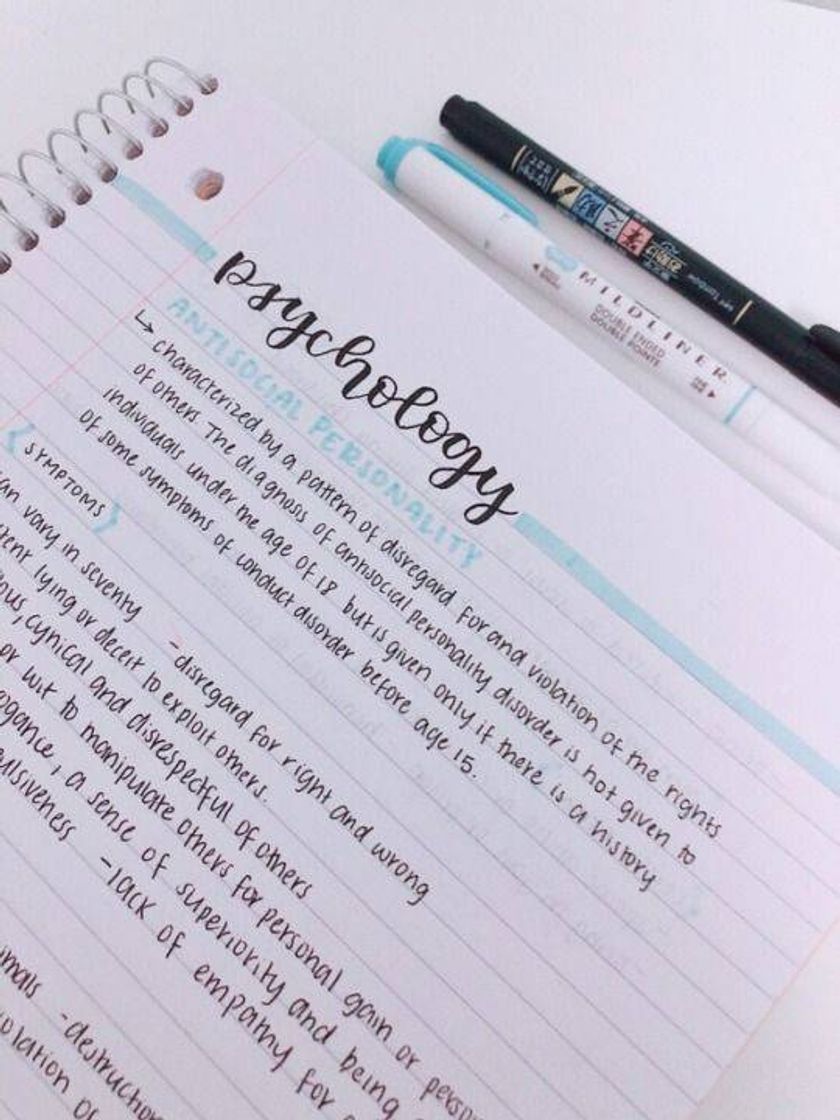 psychology
ANTISOCIAL PERSONALITY
↳ characterized by a pattern of disregard for and violation of the rights
of others. The diagnosis of antisocial personality disorder is not given to
individuals under the age of 18 but is given only if there is a history
of some symptoms of conduct disorder before age 15.
SYMPTOMS
vary in severity - disregard for right and wrong
lying or deceit to exploit others.
cynical and disrespectful of others
or wit to manipulate others for personal gain or
a sense of superiority and being
- lack of empathy for
- destruction
MILDLINER
DOUBLE ENDED
DOUBLE POINTE
Tombow